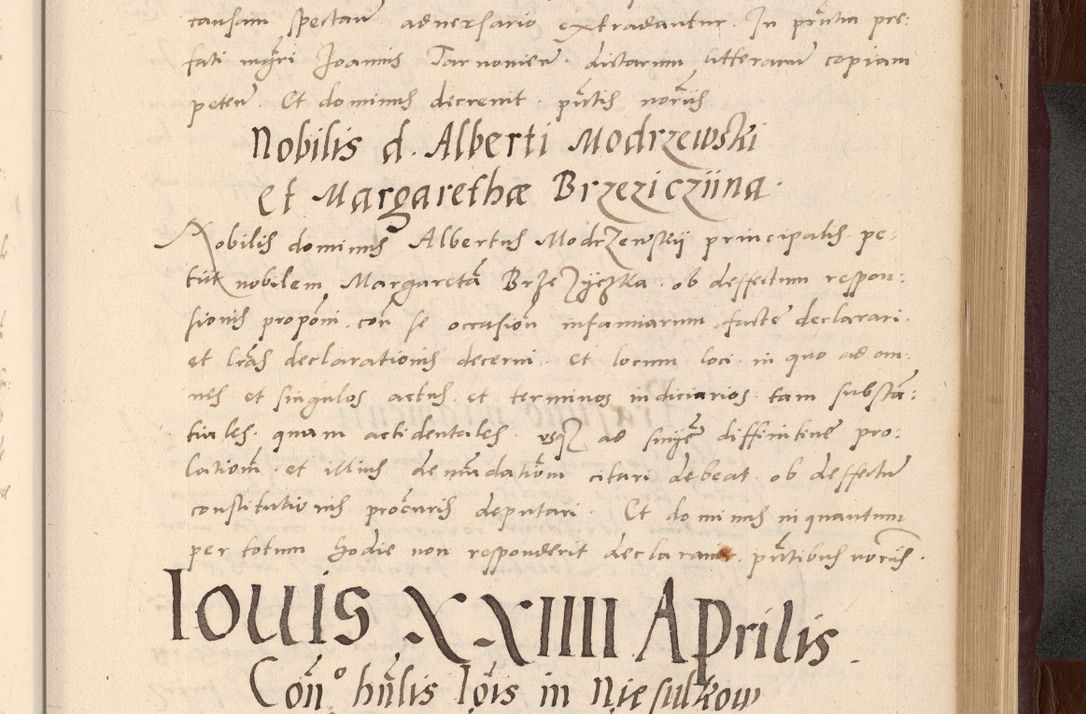 causam spectan̄ adversario extradantur. In pn̄tia pre:
fati mgr̄i Joannis Tarnovien̄. dictarum litterarum copiam
peten̄. Et dominus decrevit. pn̄tib norīis
Nobilis d. Alberti Modrzewski
et Margarethæ Brzeziczijna.
Nobilis dominus Albertus ModrZewskij principalis pe:
tiit nobilem Margaretā BrzeZijczka. ob deffectum respon:
sionis propōni. con̄ se occasion̄ infamiarum facte declarari.
et lrās declarationis decerni. et locum loci in quo ad om:
nes et singulos actus. et terminos iudiciarios. tam substā:
tiales. quam accidentales. usqȝ ad snīe diffinitive pro:
lationē. et illius demādationem citari debeat. ob deffectū
constitutionis procūris deputari. Et dominus inquantum
per totum hodie non responderit declaravit. pn̄tibus norīis.
Iovis XXIIII Aprilis.
Con̄o hn̄lis Iōis in Niesulkow